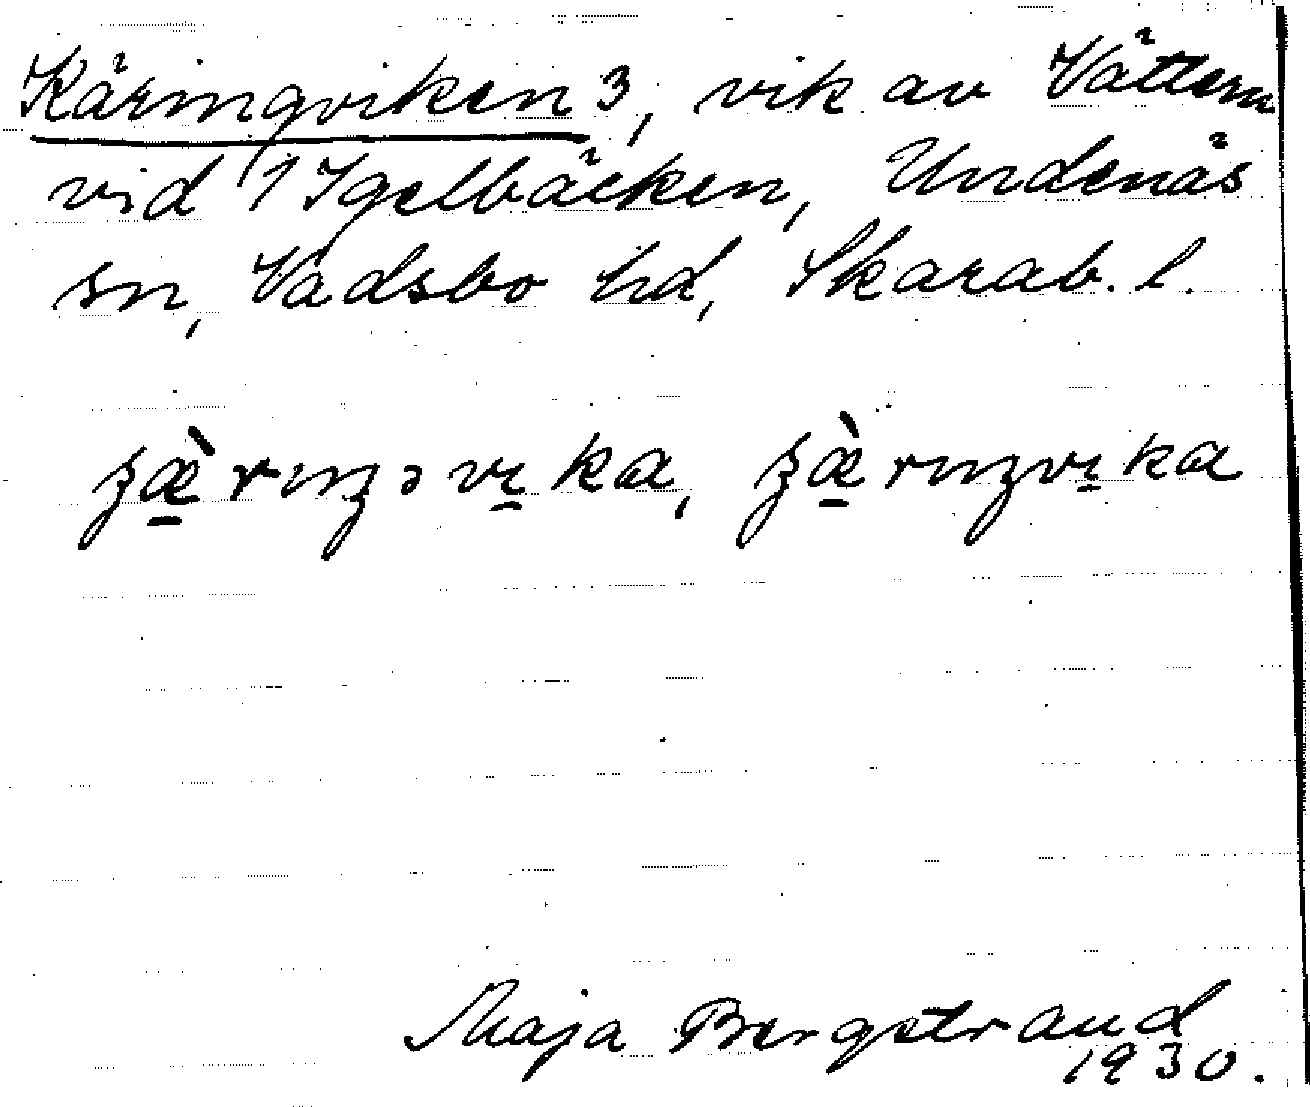 Käringviken 3, vik av Vättern
vid 1 Igelbäcken, Undenäs
sn, Vadsbo hd, Skarab. l.
Maja Bergstrand
1930.